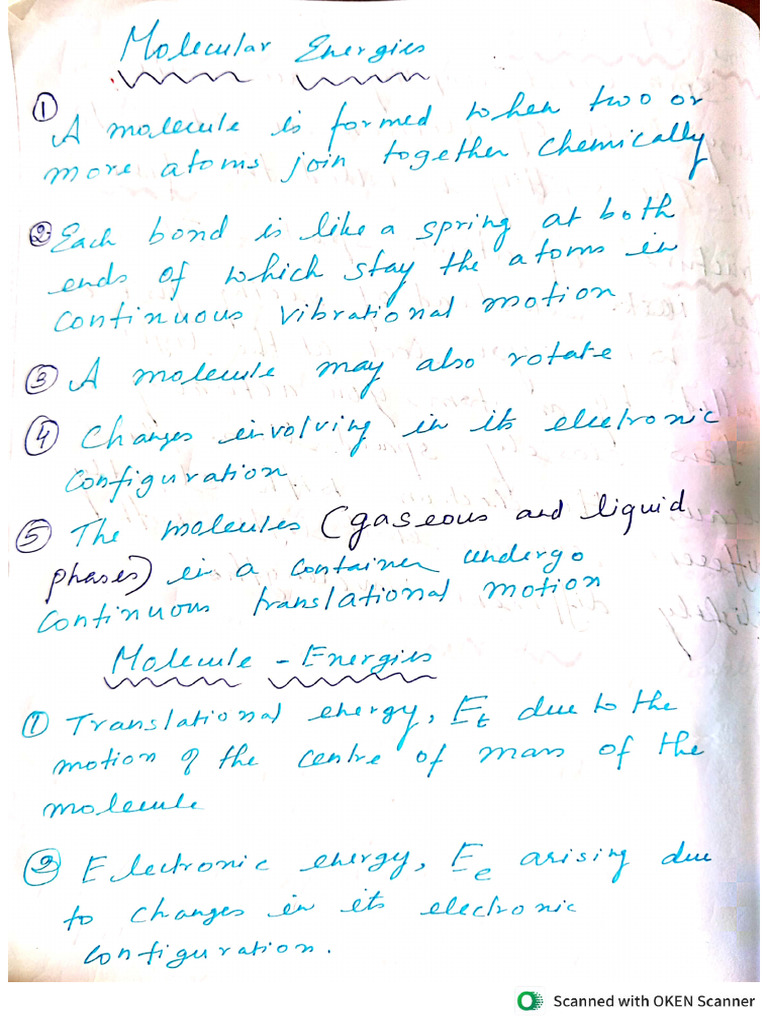 Molecular Energies
① A molecule is formed when two or
more atoms join together chemically
② Each bond is like a spring at both
ends of which stay the atoms in
continuous vibrational motion
③ A molecule may also rotate
④ Changes involving in its electronic
configuration
⑤ The molecules (gaseous and liquid
phases) in a container undergo
continuous translational motion
Molecule - Energies
① Translational energy, Et due to the
motion of the centre of mass of the
molecule
② Electronic energy, Ee arising due
to changes in its electronic
configuration.
Scanned with OKEN Scanner